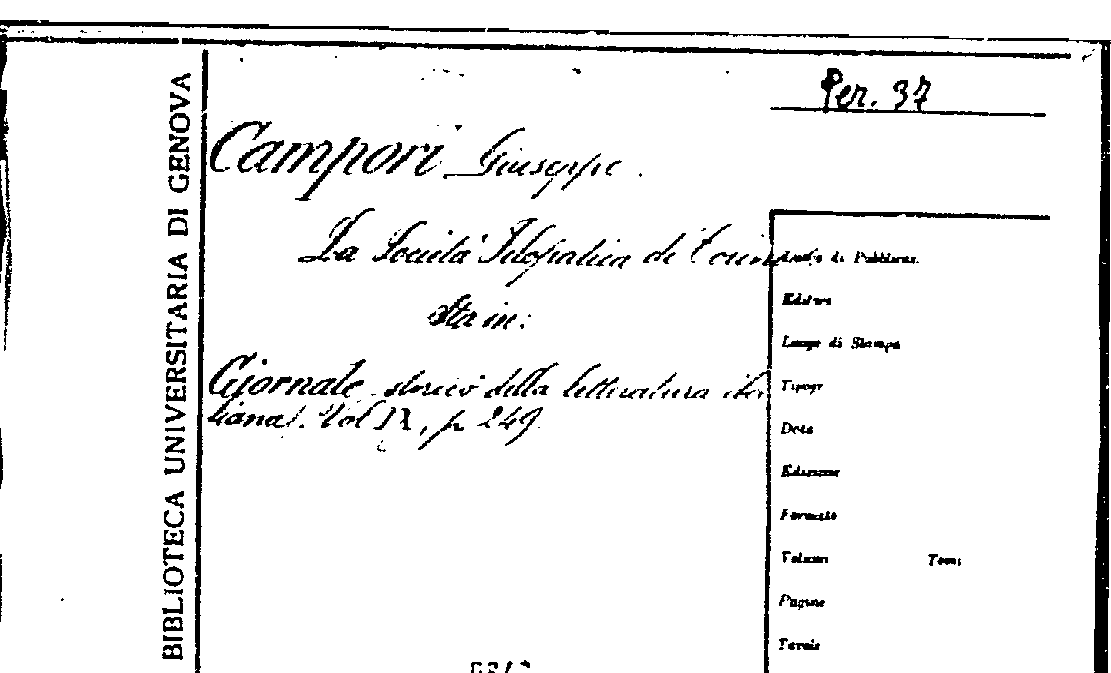 Per. 37
BIBLIOTECA UNIVERSITARIA DI GENOVA
Campori Giuseppe.
La Società Filopatica di Torino
Sta in:
Giornale storico della letteratura ita
liana. Vol IX, p 249
di Pubblicaz.
Editore
Luogo di Stampa
Tipogr
Data
Edizione
Formato
Volumi Tomi
Pagine
Tavole